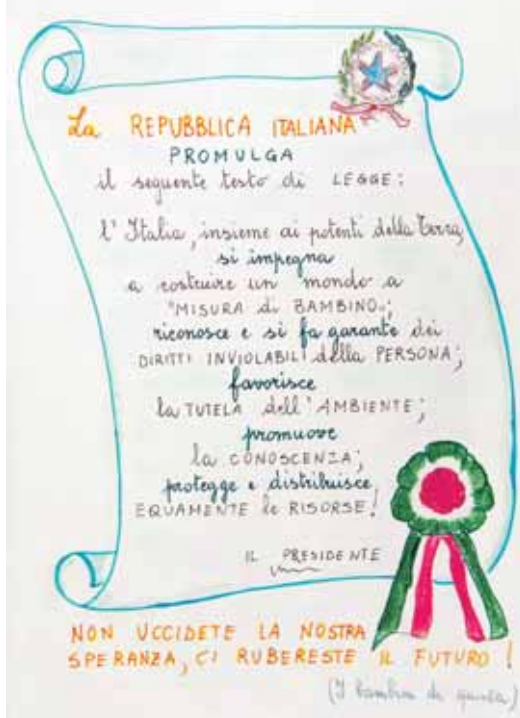 La REPUBBLICA ITALIANA
PROMULGA
il seguente testo di LEGGE:
l'Italia, insieme ai potenti della Terra,
si impegna
a costruire un mondo a
"MISURA di BAMBINO";
riconosce e si fa garante dei
DIRITTI INVIOLABILI della PERSONA;
favorisce
la TUTELA dell'AMBIENTE;
promuove
la CONOSCENZA;
protegge e distribuisce
EQUAMENTE le RISORSE!
IL PRESIDENTE
NON UCCIDETE LA NOSTRA
SPERANZA, CI RUBERESTE IL FUTURO!
(I bambini di quinta)